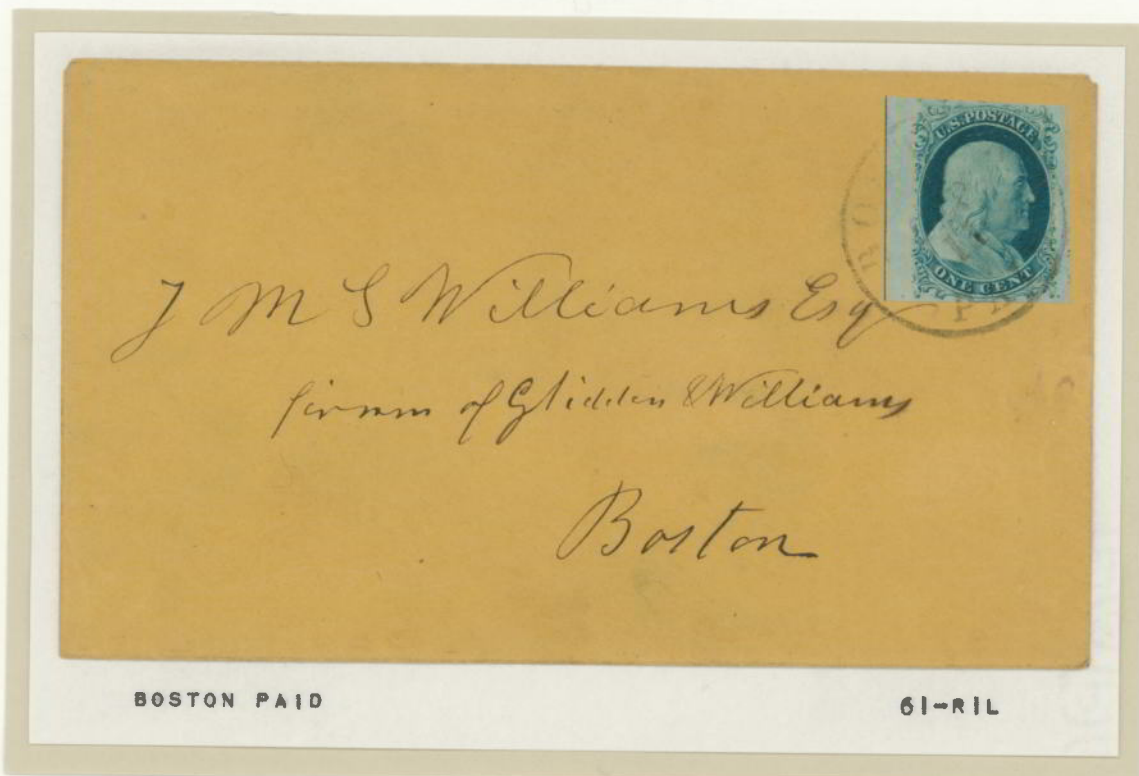 U.S. POSTAGE
ONE CENT
BO PA
J M S Williams Esq
firm of Glidden & Williams
Boston
BOSTON PAID
61-R1L